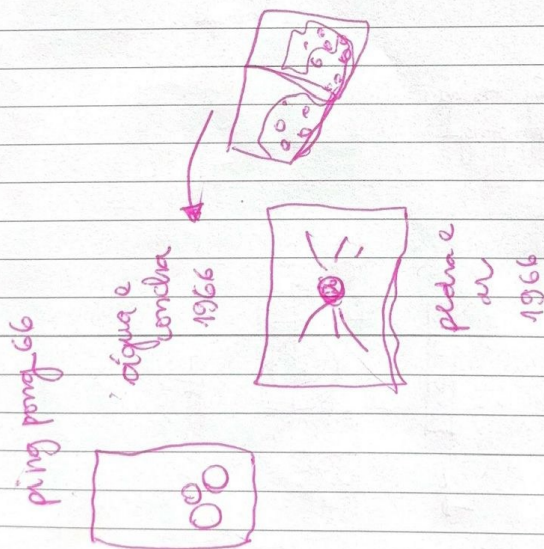 ping pong 66
água e
concha
1966
pedra e
ar
1966